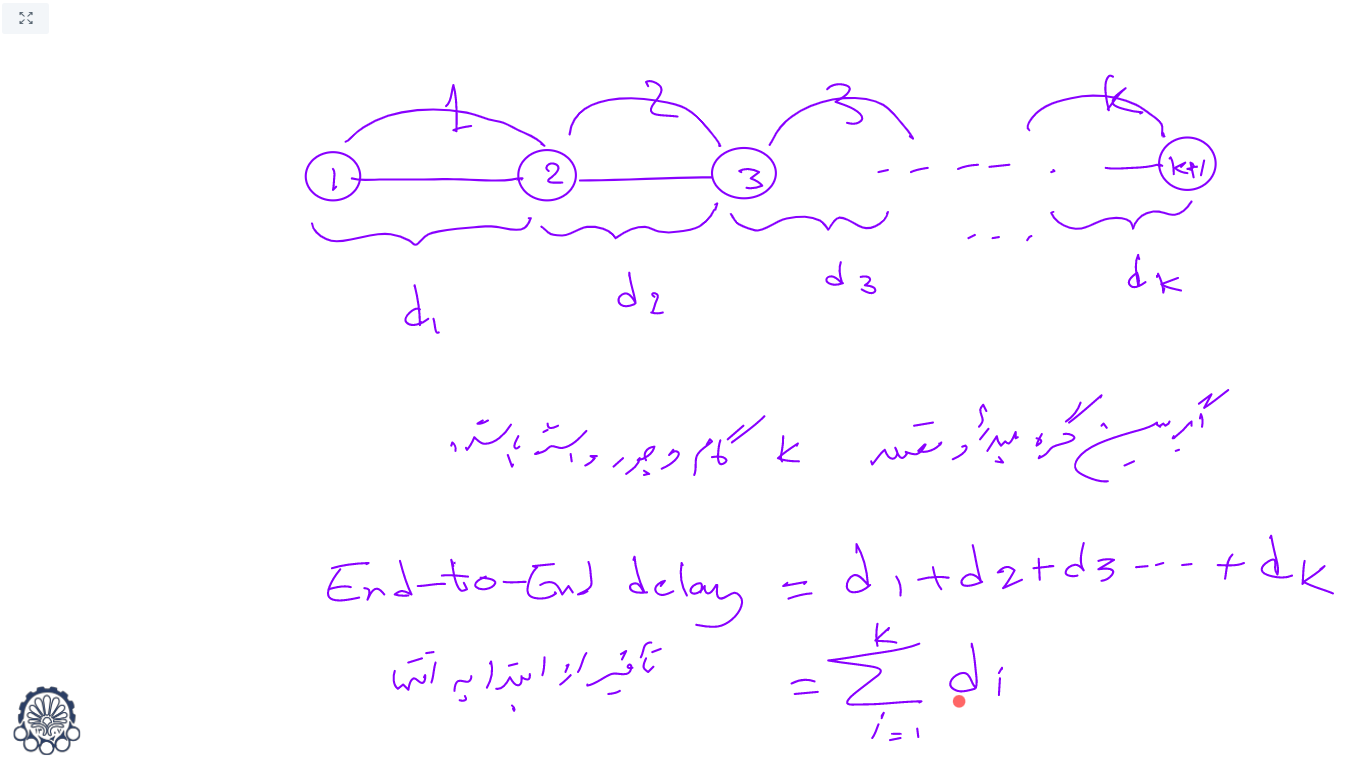 1 2 3 k
1 2 3 - - - - . k+1
d1 d2 d3 ... dk
اگر بین گره مبدأ و مقصد k گام وجود داشته باشد،
End-to-End delay = d1 + d2 + d3 --- + dk
تأخیر از ابتدا به انتها = ∑ k i=1 di